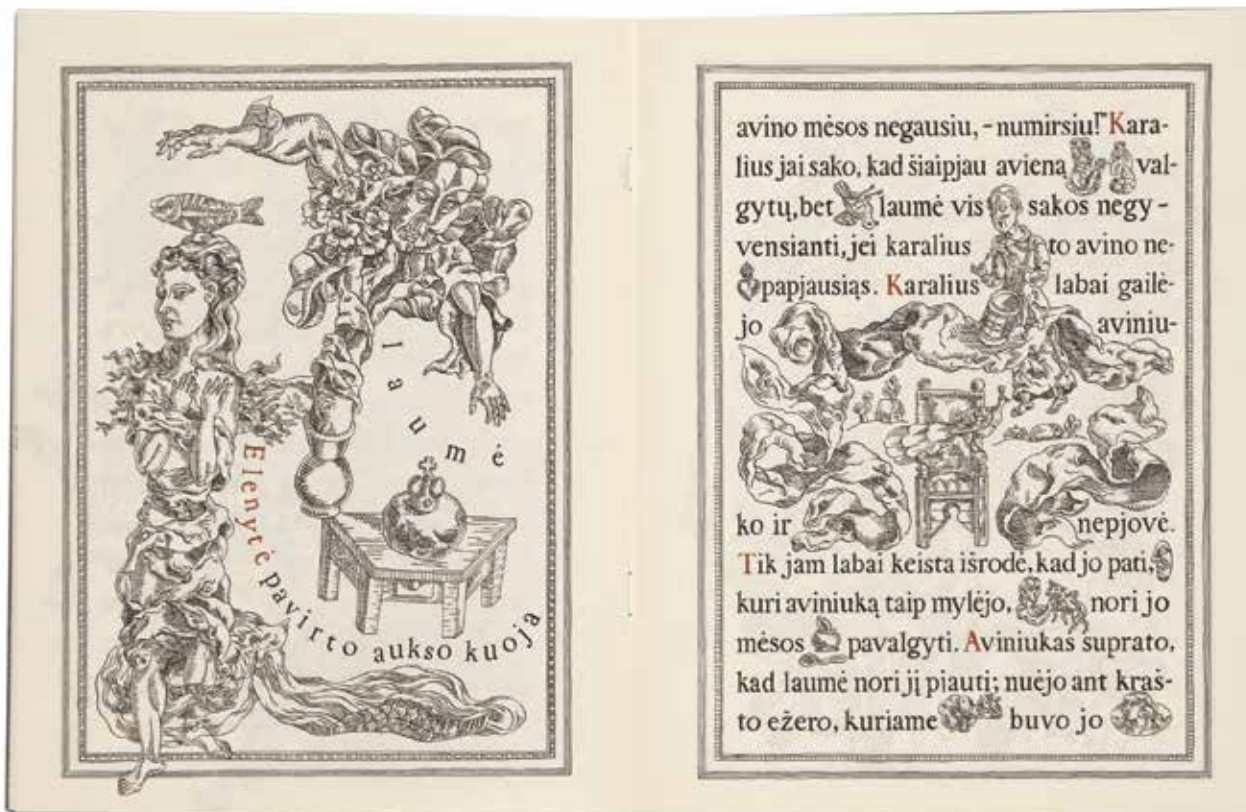 laumė
Elenytė pavirto aukso kuoja
avino mėsos negausiu, – numirsiu!" Kara-
lius jai sako, kad šiaipjau avieną val-
gytų, bet laumė vis sakos negy-
vensianti, jei karalius to avino ne-
papjausiąs. Karalius labai gailė-
jo aviniu-
ko ir nepjovė.
Tik jam labai keista išrodė, kad jo pati,
kuri aviniuką taip mylėjo, nori jo
mėsos pavalgyti. Aviniukas suprato,
kad laumė nori jį piauti; nuėjo ant kraš-
to ežero, kuriame buvo jo